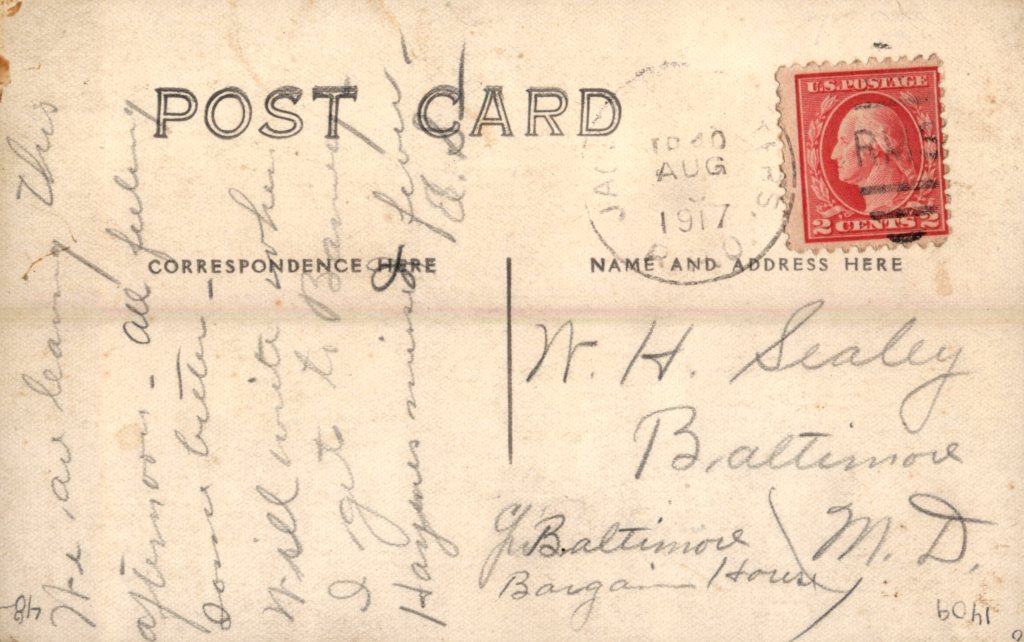 POST CARD
CORRESPONDENCE HERE
NAME AND ADDRESS HERE
U.S. POSTAGE
2 CENTS 2
TR 40
AUG
1917
R.P.O.
We are leaving this
afternoon - all feeling
some better -
Will write when
I get to
Haynes minus fever -
W. H. Sealey
Baltimore
M. D.
Baltimore
Bargain House
48-
1409